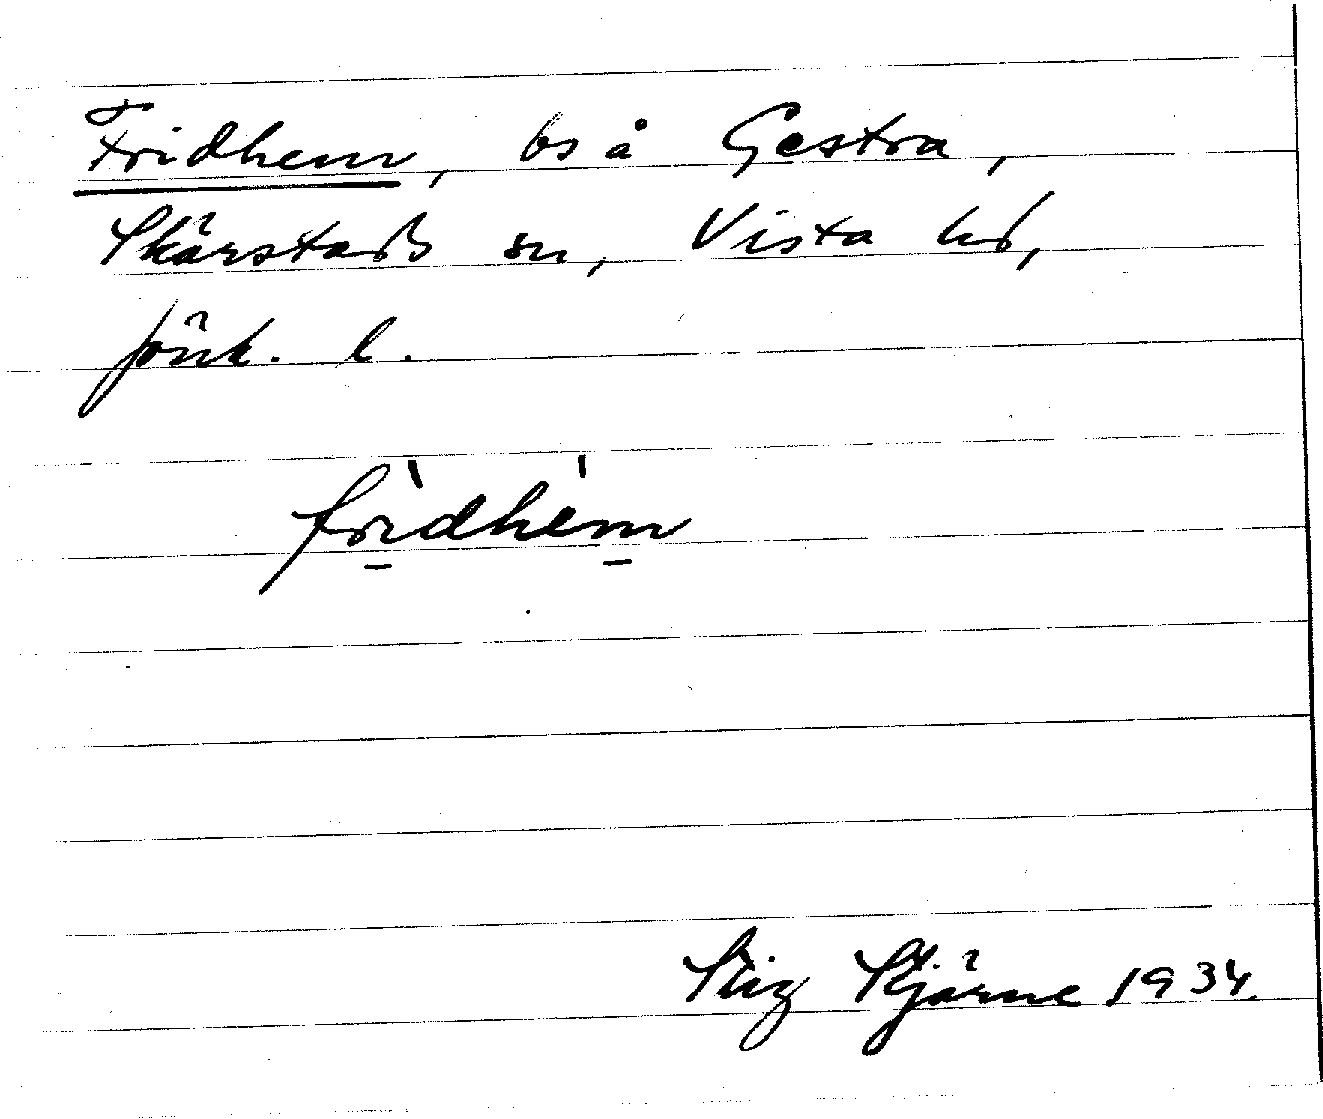 Fridhem, bs å Gestra,
Skärstads sn, Vista hd,
Jönk. l.
frì̠dhém̠
Stig Stjärne 1934.